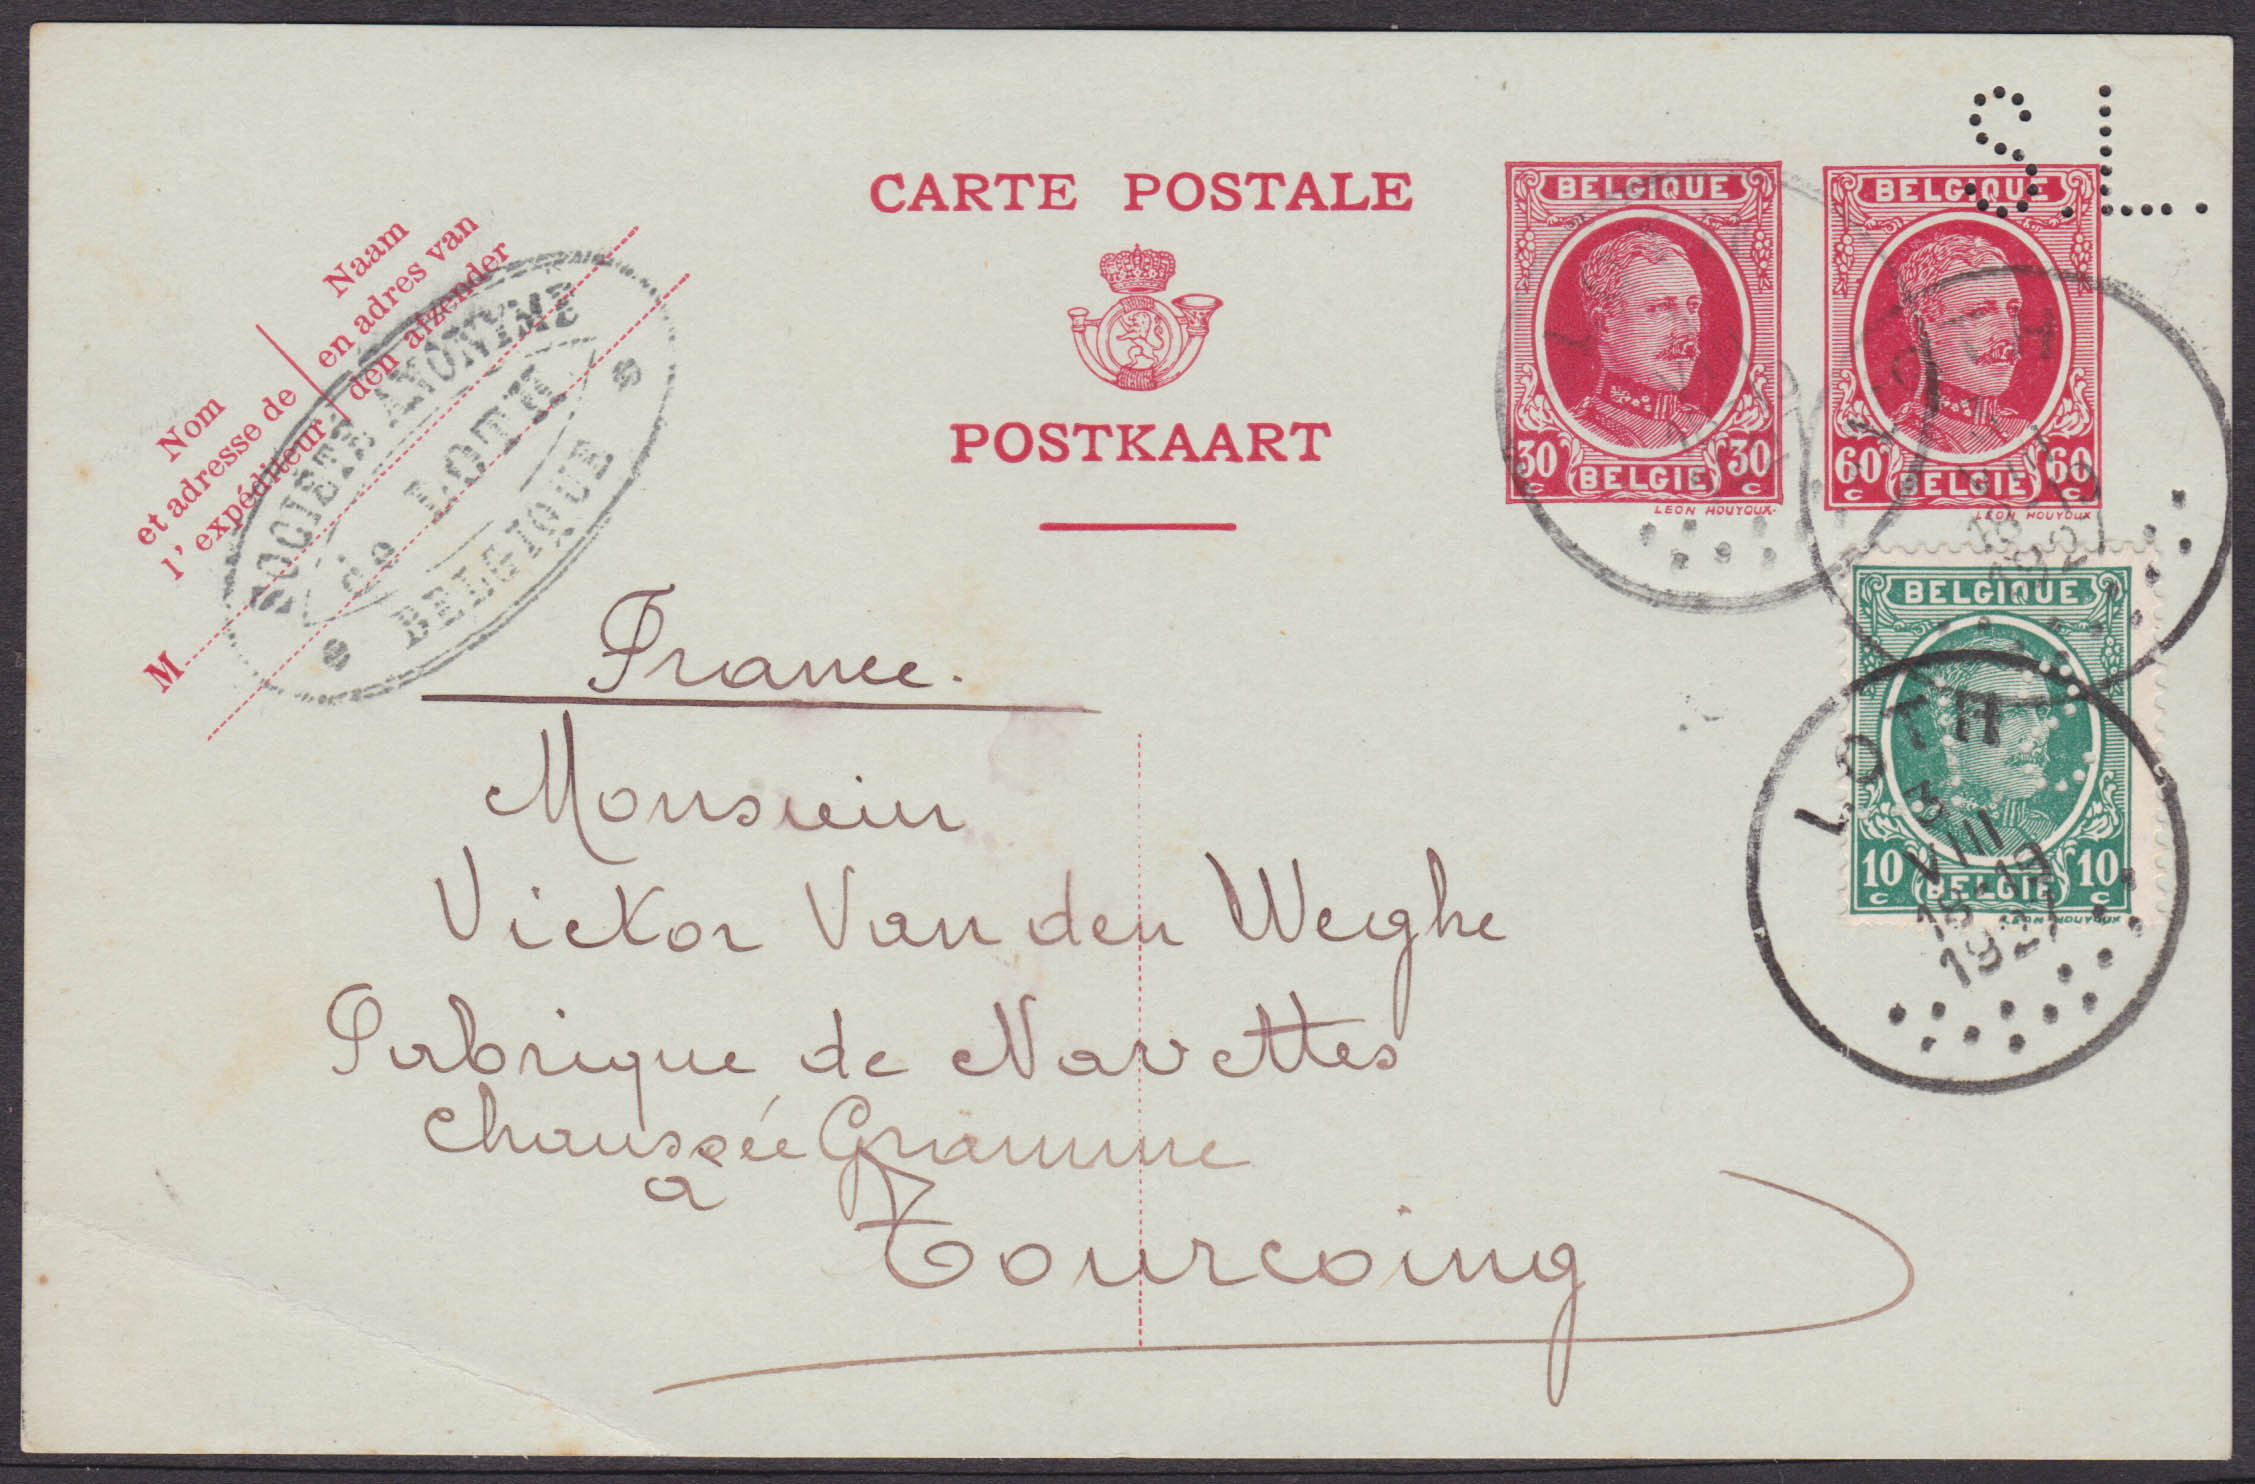 S.L.
CARTE POSTALE
POSTKAART
Nom
et adresse de
l'expéditeur
Naam
en adres van
den afzender
M
SOCIETE ANONYME
de LOTH
BELGIQUE
BELGIQUE
30 30
c c
BELGIE
LEON HOUYOUX.
BELGIQUE
60 60
c c
BELGIE
LEON HOUYOUX
LOTH
VIII
LOTH
VIII
18-19
1927
BELGIQUE
10 10
c c
BELGIE
LEON HOUYOUX
LOTH
3
VIII
18-19
1927
France.
Monsieur
Victor Van den Weghe
Fabrique de Navettes
chaussée Gramme
a
Tourcoing